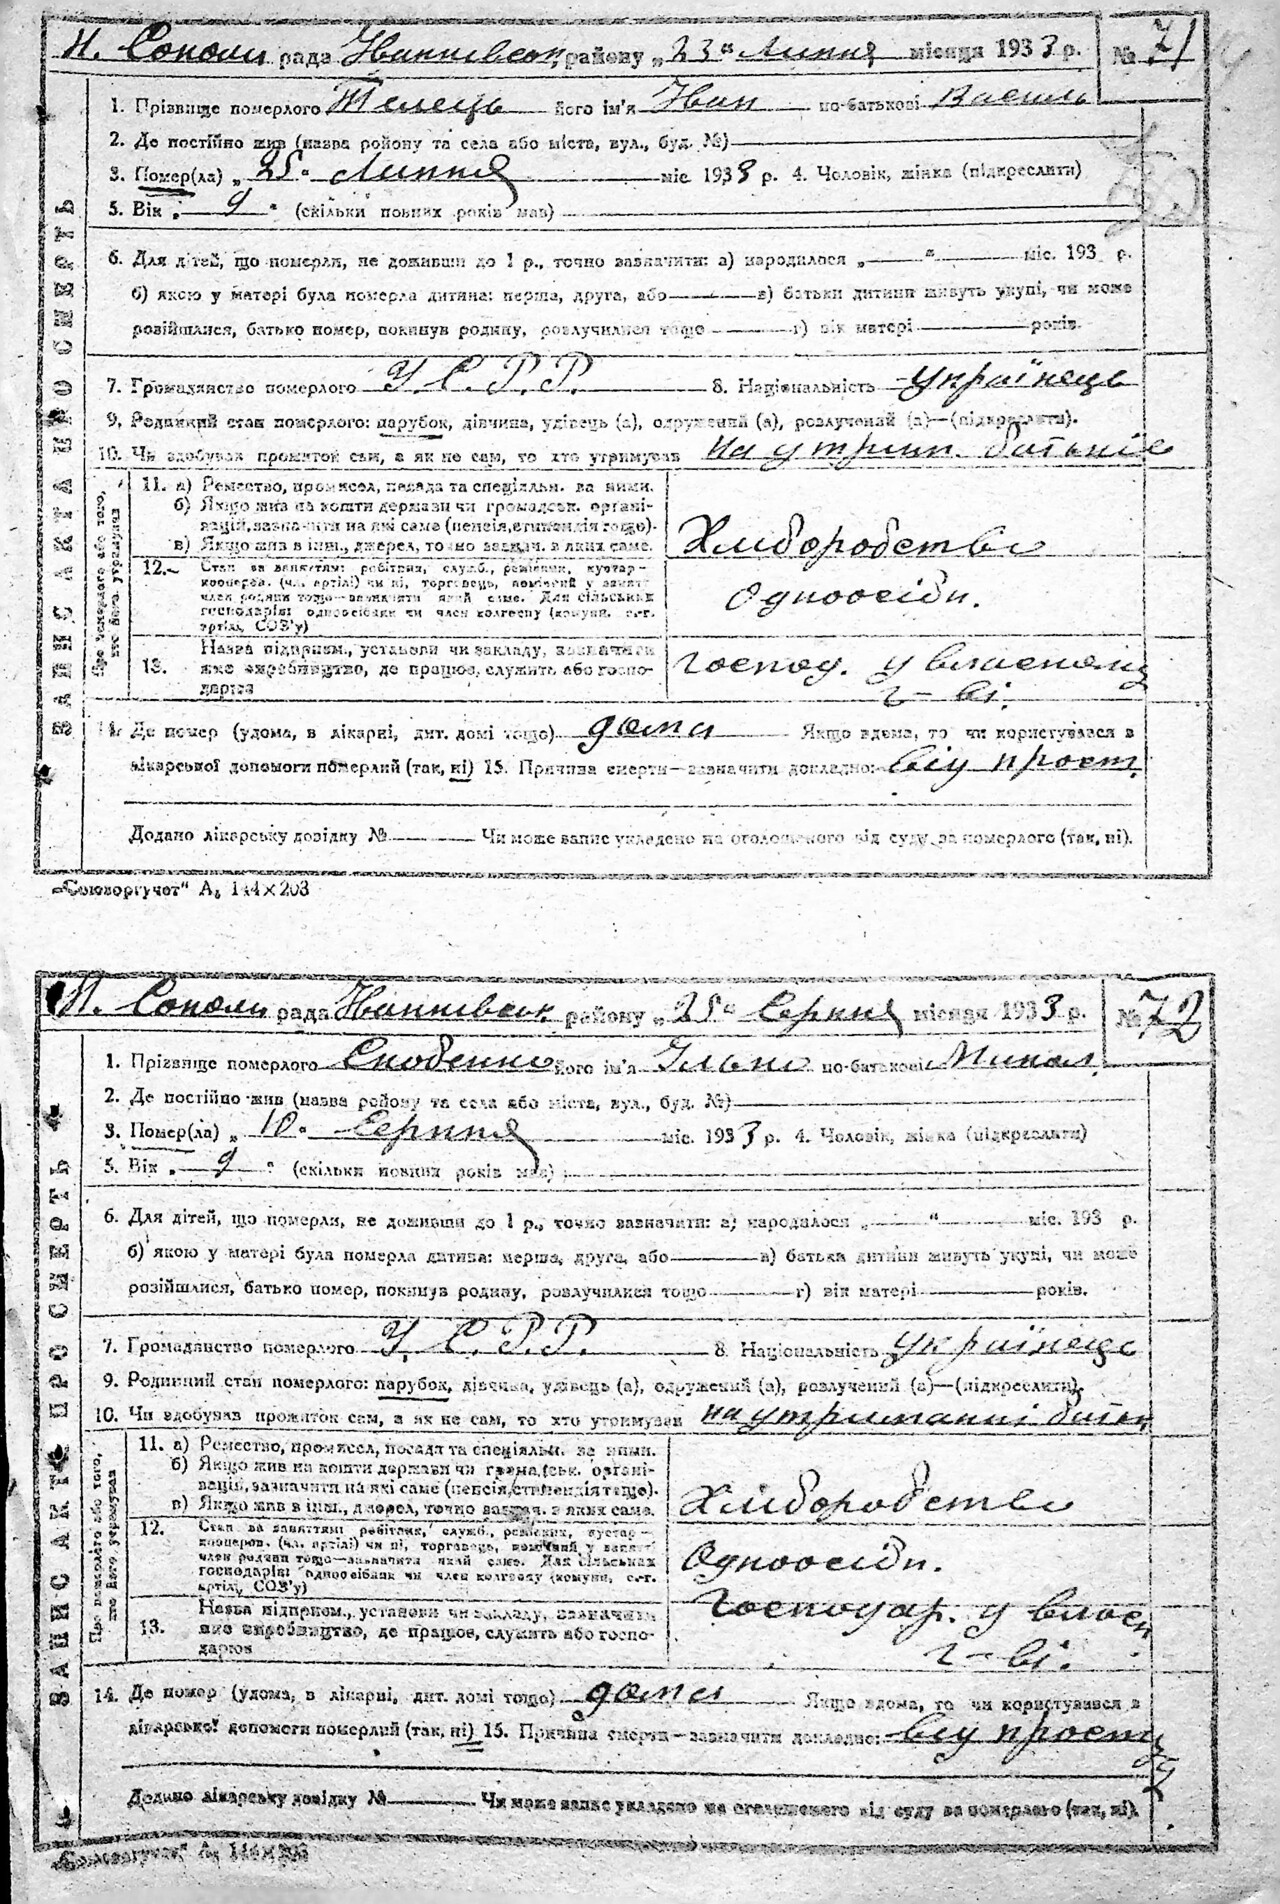 Н. Сополи рада Іванівськ. району „23" Липня місяця 1933 р. № 71
ЗАПИС АКТА ПРО СМЕРТЬ
1. Прізвище померлого Телець його ім'я Іван по-батькові Василь
2. Де постійно жив (назва району та села або міста, вул., буд. №)
3. Помер(ла) „ 25 " Липня міс. 1933 р. 4. Чоловік, жінка (підкреслити)
5. Вік „ 9 " (скільки повних років мав)
6. Для дітей, що померли, не доживши до 1 р., точно зазначити: а) народилося „ " міс. 193 р.
б) якою у матері була померла дитина: перша, друга, або в) батьки дитини живуть укупі, чи може
розійшлися, батько помер, покинув родину, розлучилися тощо г) вік матері років.
7. Громадянство померлого У.С.Р.Р. 8. Національність українець
9. Родинний стан померлого: парубок, дівчина, удівець (а), одружений (а), розлучений (а)—(підкреслити).
10. Чи здобував прожиток сам, а як не сам, то хто утримував на утрим. батьків
Про померлого або того,
хто його утримував
11. а) Ремество, промисел, посада та спеціяльн. за ними.
б) Якщо жив на кошти держави чи громадськ. органі-
зацій, зазначити на які саме (пенсія, стипендія тощо).
в) Якщо жив в інш., джерел, точно зазнач. з яких саме.
Хліборобство
12. Стан за заняттям: робітник, служб., ремісник, кустар—
кооперов. (чл. артілі) чи ні, торговець, помічний у занятт.
член родини тощо—зазначити який саме. Для сільських
господарів: одноосібник чи член колгоспу (комуни, с.-г.
артілі, СОЗ'у)
Одноосібн.
13. Назва підприєм., установи чи закладу, зазначити
яке виробництво, де працює, служить або госпо-
дарює
Господ. у власному
г-ві.
14. Де помер (удома, в лікарні, дит. домі тощо) дома Якщо вдома, то чи користувався з
лікарської допомоги померлий (так, ні) 15. Причина смерти—зазначити докладно:
Додано лікарську довідку № Чи може запис укладено на оголошеного від суду за померлого (так, ні).
„Союзоргучет" А₆ 144×203
Н. Сополи рада Іванівськ. району „25" Серпня місяця 1933 р. № 72
ЗАПИС АКТА ПРО СМЕРТЬ
1. Прізвище померлого його ім'я Ілько по-батькові Микол.
2. Де постійно жив (назва району та села або міста, вул., буд. №)
3. Помер(ла) „ 10 " Серпня міс. 1933 р. 4. Чоловік, жінка (підкреслити)
5. Вік „ 9 " (скільки повних років мав)
6. Для дітей, що померли, не доживши до 1 р., точно зазначити: а) народилося „ " міс. 193 р.
б) якою у матері була померла дитина: перша, друга, або в) батьки дитини живуть укупі, чи може
розійшлися, батько помер, покинув родину, розлучилися тощо г) вік матері років.
7. Громадянство померлого У.С.Р.Р. 8. Національність українець
9. Родинний стан померлого: парубок, дівчина, удівець (а), одружений (а), розлучений (а)—(підкреслити).
10. Чи здобував прожиток сам, а як не сам, то хто утримував на утриманні батьк
Про померлого або того,
хто його утримував
11. а) Ремество, промисел, посада та спеціяльн. за ними.
б) Якщо жив на кошти держави чи громадськ. органі-
зацій, зазначити на які саме (пенсія, стипендія тощо).
в) Якщо жив в інш., джерел, точно зазнач. з яких саме.
Хліборобство
12. Стан за заняттям: робітник, служб., ремісник, кустар—
кооперов. (чл. артілі) чи ні, торговець, помічний у занятті
член родини тощо—зазначити який саме. Для сільських
господарів: одноосібник чи член колгоспу (комуни, с.-г.
артілі, СОЗ'у)
Одноосібн.
13. Назва підприєм., установи чи закладу, зазначити
яке виробництво, де працює, служить або госпо-
дарює
Господар. у власн
г-ві.
14. Де помер (удома, в лікарні, дит. домі тощо) дома Якщо вдома, то чи користувався з
лікарської допомоги померлий (так, ні) 15. Причина смерти—зазначити докладно:
Додано лікарську довідку № Чи може запис укладено на оголошеного від суду за померлого (так, ні).
„Союзоргучет" А₆ 144×203